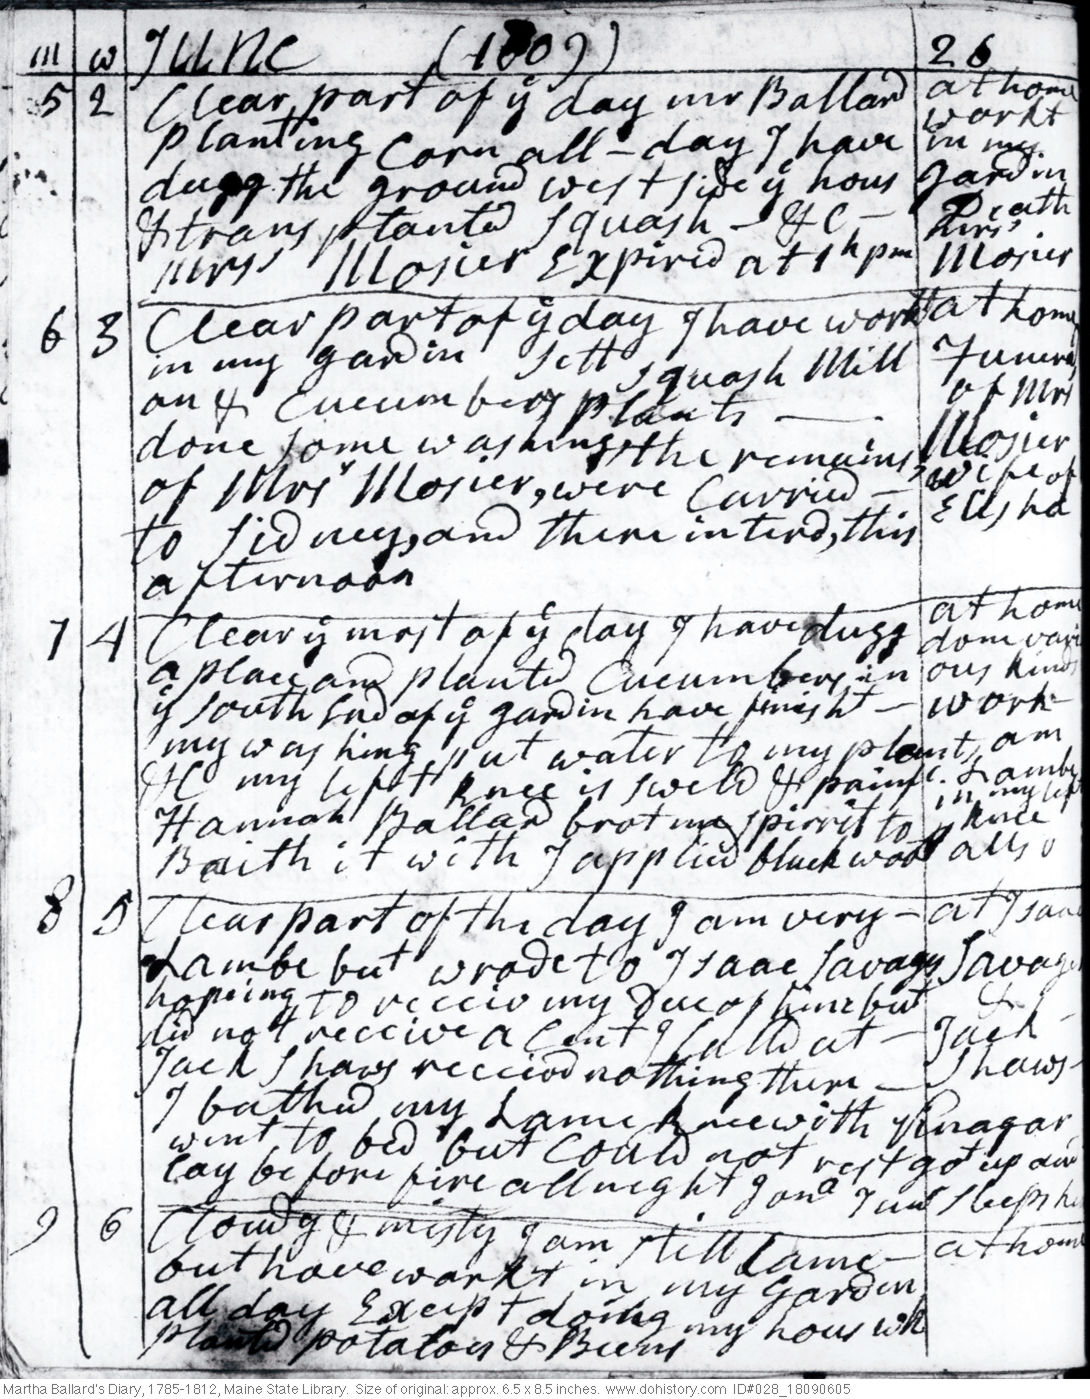 m w JUNE (1809) 26
5 2 Clear part of ÿ day mr Ballard at home
planting Corn all-day I have workt
dugg the ground west side ÿ hous in my
& transplanted squash - &C - gardin
Mrss Mosier Expired at 1 h pm Death Mrss Mosier
6 3 Clear part of ÿ day I have workt at home
in my gardin sett squash Mill Funeral
on & Cucumbers plants — of Mrs
done some washing, the remains Mosier
of Mrss Mosier, were Carried - wife of
to Sidney, and there interd, this Elisha
afternoon
7 4 Clear ÿ most of ÿ day I have dugg at home
a place and planted Cucumbers in done vari
ÿ south End of ÿ gardin have finisht - ous kinds
my washing, put water to my plants, work
&C my left knee is sweld & painf. am Lambe
Hannah Ballard brot me spirrit to in my left knee
Baith it with I applied black wool allso
8 5 Clear part of the day I am very - at Isaac
Lambe but wrode to Isaac Savages Savages
hopeing to receiv my due of him but &
did not receive a Cent I Calld at - Jack
Jack Shaws receiod nothing there - Shaws
I bathed my Lame knee with vinagar
went to bed but Could not rest got up and
lay before fire all night Jona Jun sleeps he
9 6 Clowdy & misty I am still Lame - at home
but have workt in my Garden
all day Except doing my hous wk
planted potatoes & Beens
Martha Ballard's Diary, 1785-1812, Maine State Library. Size of original: approx. 6.5 x 8.5 inches. www.dohistory.com ID#028_18090605